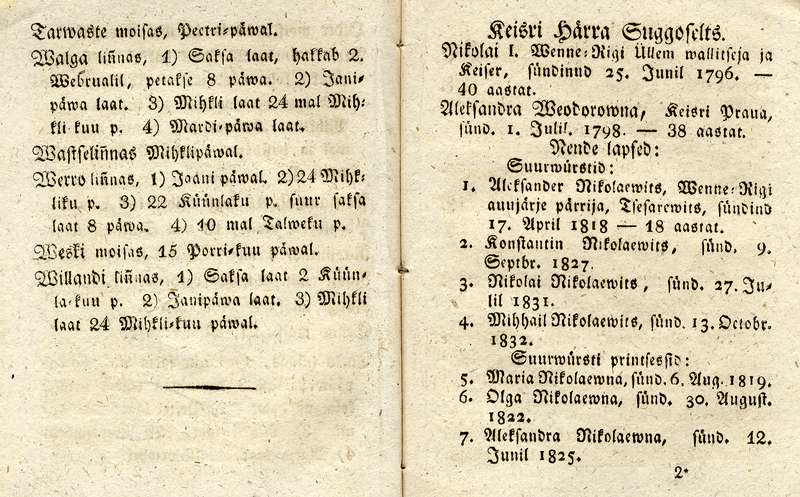 Tarwaste moisas, Peetri-päwal.
Walga liñnas, 1) Saksa laat, hakkab 2.
Webrualil, petakse 8 päwa. 2) Jani-
päwa laat. 3) Mihkli laat 24 mal Mih-
kli kuu p. 4) Mardi-päwa laat.
Wastseliñnas Mihklipäwal.
Werro liñnas, 1) Jaani päwal. 2) 24 Mihk-
liku p. 3) 22 Küünlaku p. suur saksa
laat 8 päwa. 4) 10 mal Talweku p.
Weski moisas, 15 Porri-kuu päwal.
Willandi liñnas, 1) Saksa laat 2 Küün-
la-kuu p. 2) Janipäwa laat. 3) Mihkli
laat 24 Mihkli-kuu päwal.
Keisri Härra Suggoselts.
Nikolai I. Wenne-Rigi Üllem wallitseja ja
Keiser, sündinud 25. Junil 1796. —
40 aastat.
Aleksandra Weodorowna, Keisri Praua,
sünd. 1. Julil. 1798. — 38 aastat.
Nende lapsed:
Suurwürstid:
1. Aleksander Nikolaewits, Wenne-Rigi
auujärje pärrija, Tsesarewits, sündind
17. April 1818 — 18 aastat.
2. Konstantin Nikolaewits, sünd. 9.
Septbr. 1827.
3. Nikolai Nikolaewits, sünd. 27. Ju-
lil 1831.
4. Mihhail Nikolaewits, sünd. 13. Octobr.
1832.
Suurwürsti printsessid:
5. Maria Nikolaewna, sünd. 6. Aug. 1819.
6. Olga Nikolaewna, sünd. 30. August.
1822.
7. Aleksandra Nikolaewna, sünd. 12.
Junil 1825.
2*